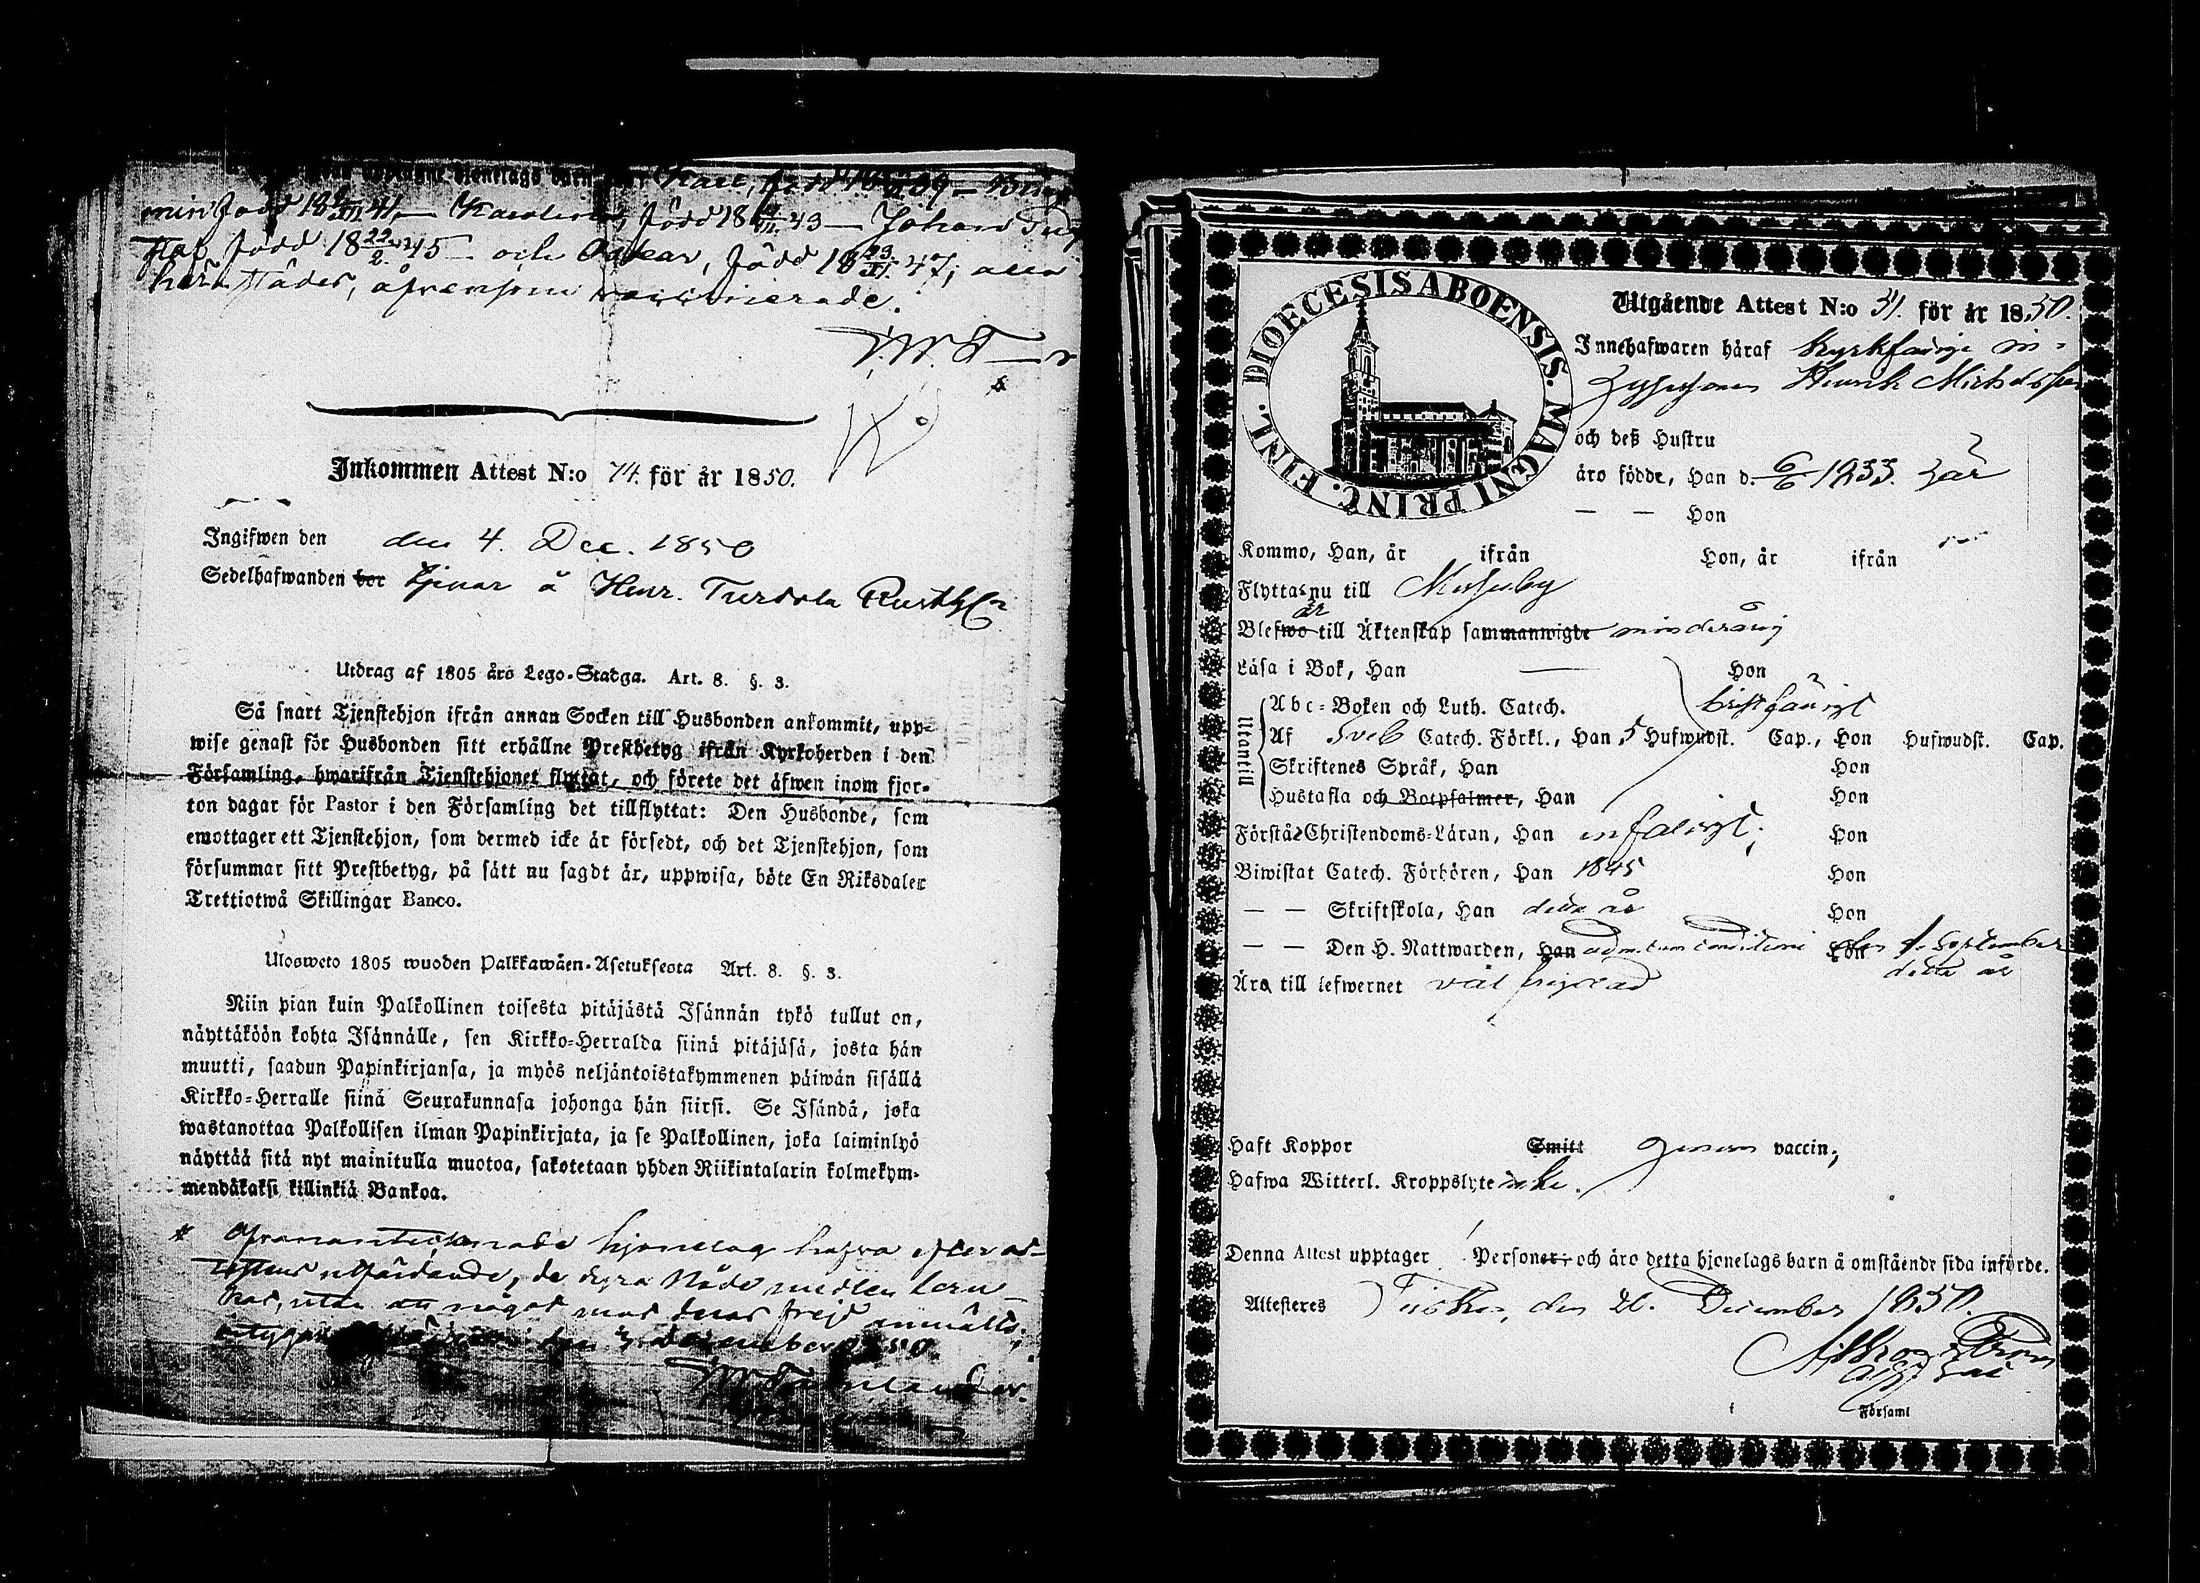 född 18 39
min född 18 41 — Karolina, född 18 43 — Johan Gus
taf född 18 22/2 45 — och Oskar, född 18 23/11 47, alla
härstädes, äfvensom vaccinerade.
Inkommen Attest N:o 74. för år 1850.
Ingifwen den den 4. Dec. 1850
Sedelhafwanden bor tjenar å Henr. Turdola Rusth.
Utdrag af 1805 års Lego-Stadga. Art. 8. §. 3.
Så snart Tjenstehjon ifrån annan Socken till Husbonden ankommit, upp-
wise genast för Husbonden sitt erhållne Prestbetyg ifrån Kyrkoherden i den
Församling, hwarifrån Tjenstehjonet flyttat, och förete det äfwen inom fjor-
ton dagar för Pastor i den Församling det tillflyttat: Den Husbonde, som
emottager ett Tjenstehjon, som dermed icke är försedt, och det Tjenstehjon, som
försummar sitt Prestbetyg, på sätt nu sagdt är, uppwisa, böte En Riksdaler
Trettiotwå Skillingar Banco.
Ulosweto 1805 wuoden Palkkawäen-Asetuksesta Art. 8. §. 3.
Niin pian kuin Palkollinen toisesta pitäjästä Isännän tykö tullut on,
näyttäköön kohta Isännälle, sen Kirkko-Herralda siinä pitäjäsä, josta hän
muutti, saadun Papinkirjansa, ja myös neljäntoistakymmenen päiwän sisällä
Kirkko-Herralle siinä Seurakunnasa johonga hän siirsi. Se Isändä, joka
wastanottaa Palkollisen ilman Papinkirjata, ja se Palkollinen, joka laiminlyö
näyttää sitä nyt mainitulla muotoa, sakotetaan yhden Riikintalarin kolmekym-
mendäkaksi killinkiä Bankoa.
* Ofvananteknade hjonelag hafva efter at-
testens utfärdande, de dyra Nådemedlen bru-
kat, utan att något mot deras frejd anmälts;
betygar den 3 December 1850.
DIOECESIS ABOENSIS. MAGNI PRINC. FINL.
Utgående Attest N:o 31. för år 1850.
Innehafwaren häraf
Henrik Michelsson
och deß Hustru
äro födde, Han d. 6/6 1833. här
— — Hon
Kommo, Han, år ifrån Hon, år ifrån
Flyttas nu till
är
Blefwo till Äktenskap sammanwigde minderårig
Läsa i Bok, Han — Hon
Utantill
Abc-Boken och Luth. Catech. försvarligt
Af Sveb Catech. Förkl., Han 5 Hufwudst. Cap., Hon Hufwudst. Cap.
Skriftenes Språk, Han Hon
Hustafla och Botpsalmer, Han Hon
Förstå Christendoms-Läran, Han enfaldigt; Hon
Biwistat Catech. Förhören, Han 1845 Hon
— — Skriftskola, Han detta år Hon
— — Den H. Nattwarden, Han Hon den 1. September
detta år
Äro till lefwernet väl frejdad
Haft Koppor Smitt genom vaccin;
Hafwa Witterl. Kroppslyte icke.
Denna Attest upptager 1 Personer; och äro detta hjonelags barn å omstående sida införde.
Attesteres den 20. December 1850.
i Församl